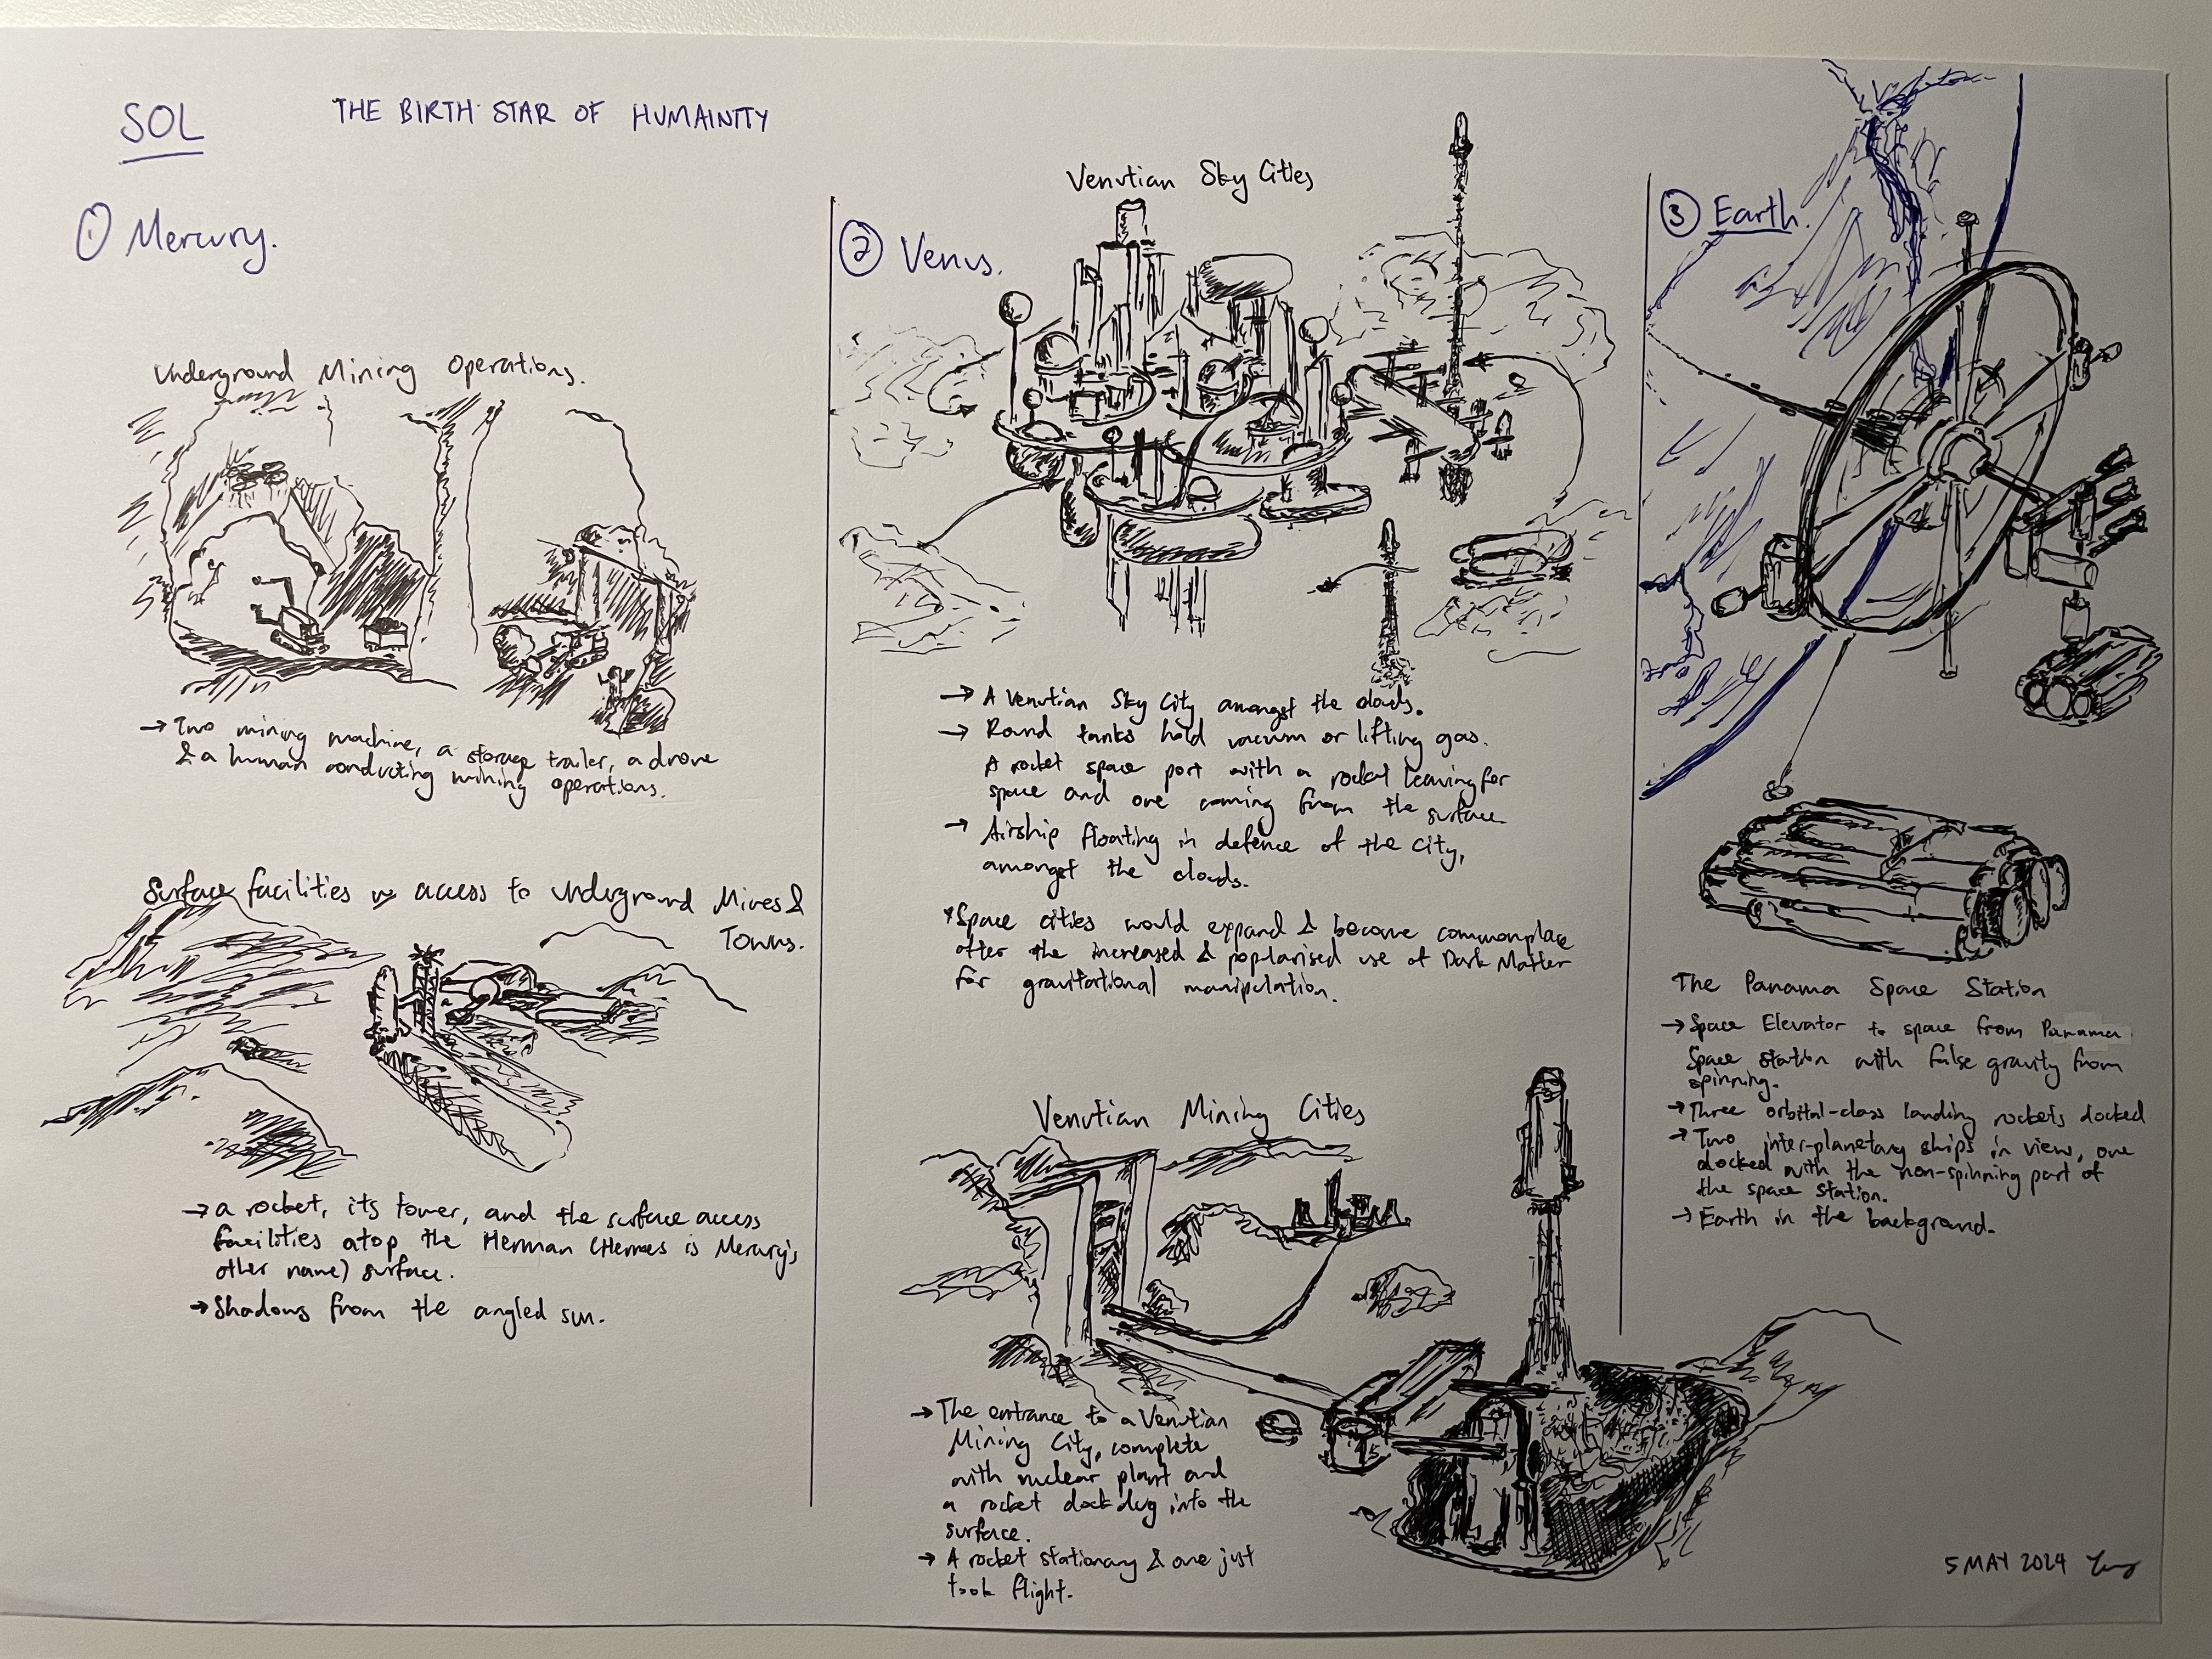 SOL
THE BIRTH STAR OF HUMAINITY
① Mercury.
Underground Mining Operations.
→ Two mining machine, a storage trailer, a drone
& a human conducting mining operations.
Surface facilities w/ access to Underground Mines &
Towns.
→ a rocket, its tower, and the surface access
facilities atop the Herman (Hermes is Mercury's
other name) surface.
→ Shadows from the angled sun.
② Venus.
Venutian Sky Cities
→ A Venutian Sky City amongst the clouds.
→ Round tanks hold vacuum or lifting gas.
A rocket space port with a rocket leaving for
space and one coming from the surface.
→ Airship floating in defence of the city,
amongst the clouds.
*Space cities would expand & become commonplace
after the increased & popularised use of Dark Matter
for gravitational manipulation.
Venutian Mining Cities
→ The entrance to a Venutian
Mining City, complete
with nuclear plant and
a rocket dock dug into the
surface.
→ A rocket stationary & one just
took flight.
③ Earth.
The Panama Space Station
→ Space Elevator to space from Panama
Space station with false gravity from
spinning.
→ Three orbital-class landing rockets docked
→ Two inter-planetary ships in view, one
docked with the non-spinning part of
the space station.
→ Earth in the background.
5 MAY 2024